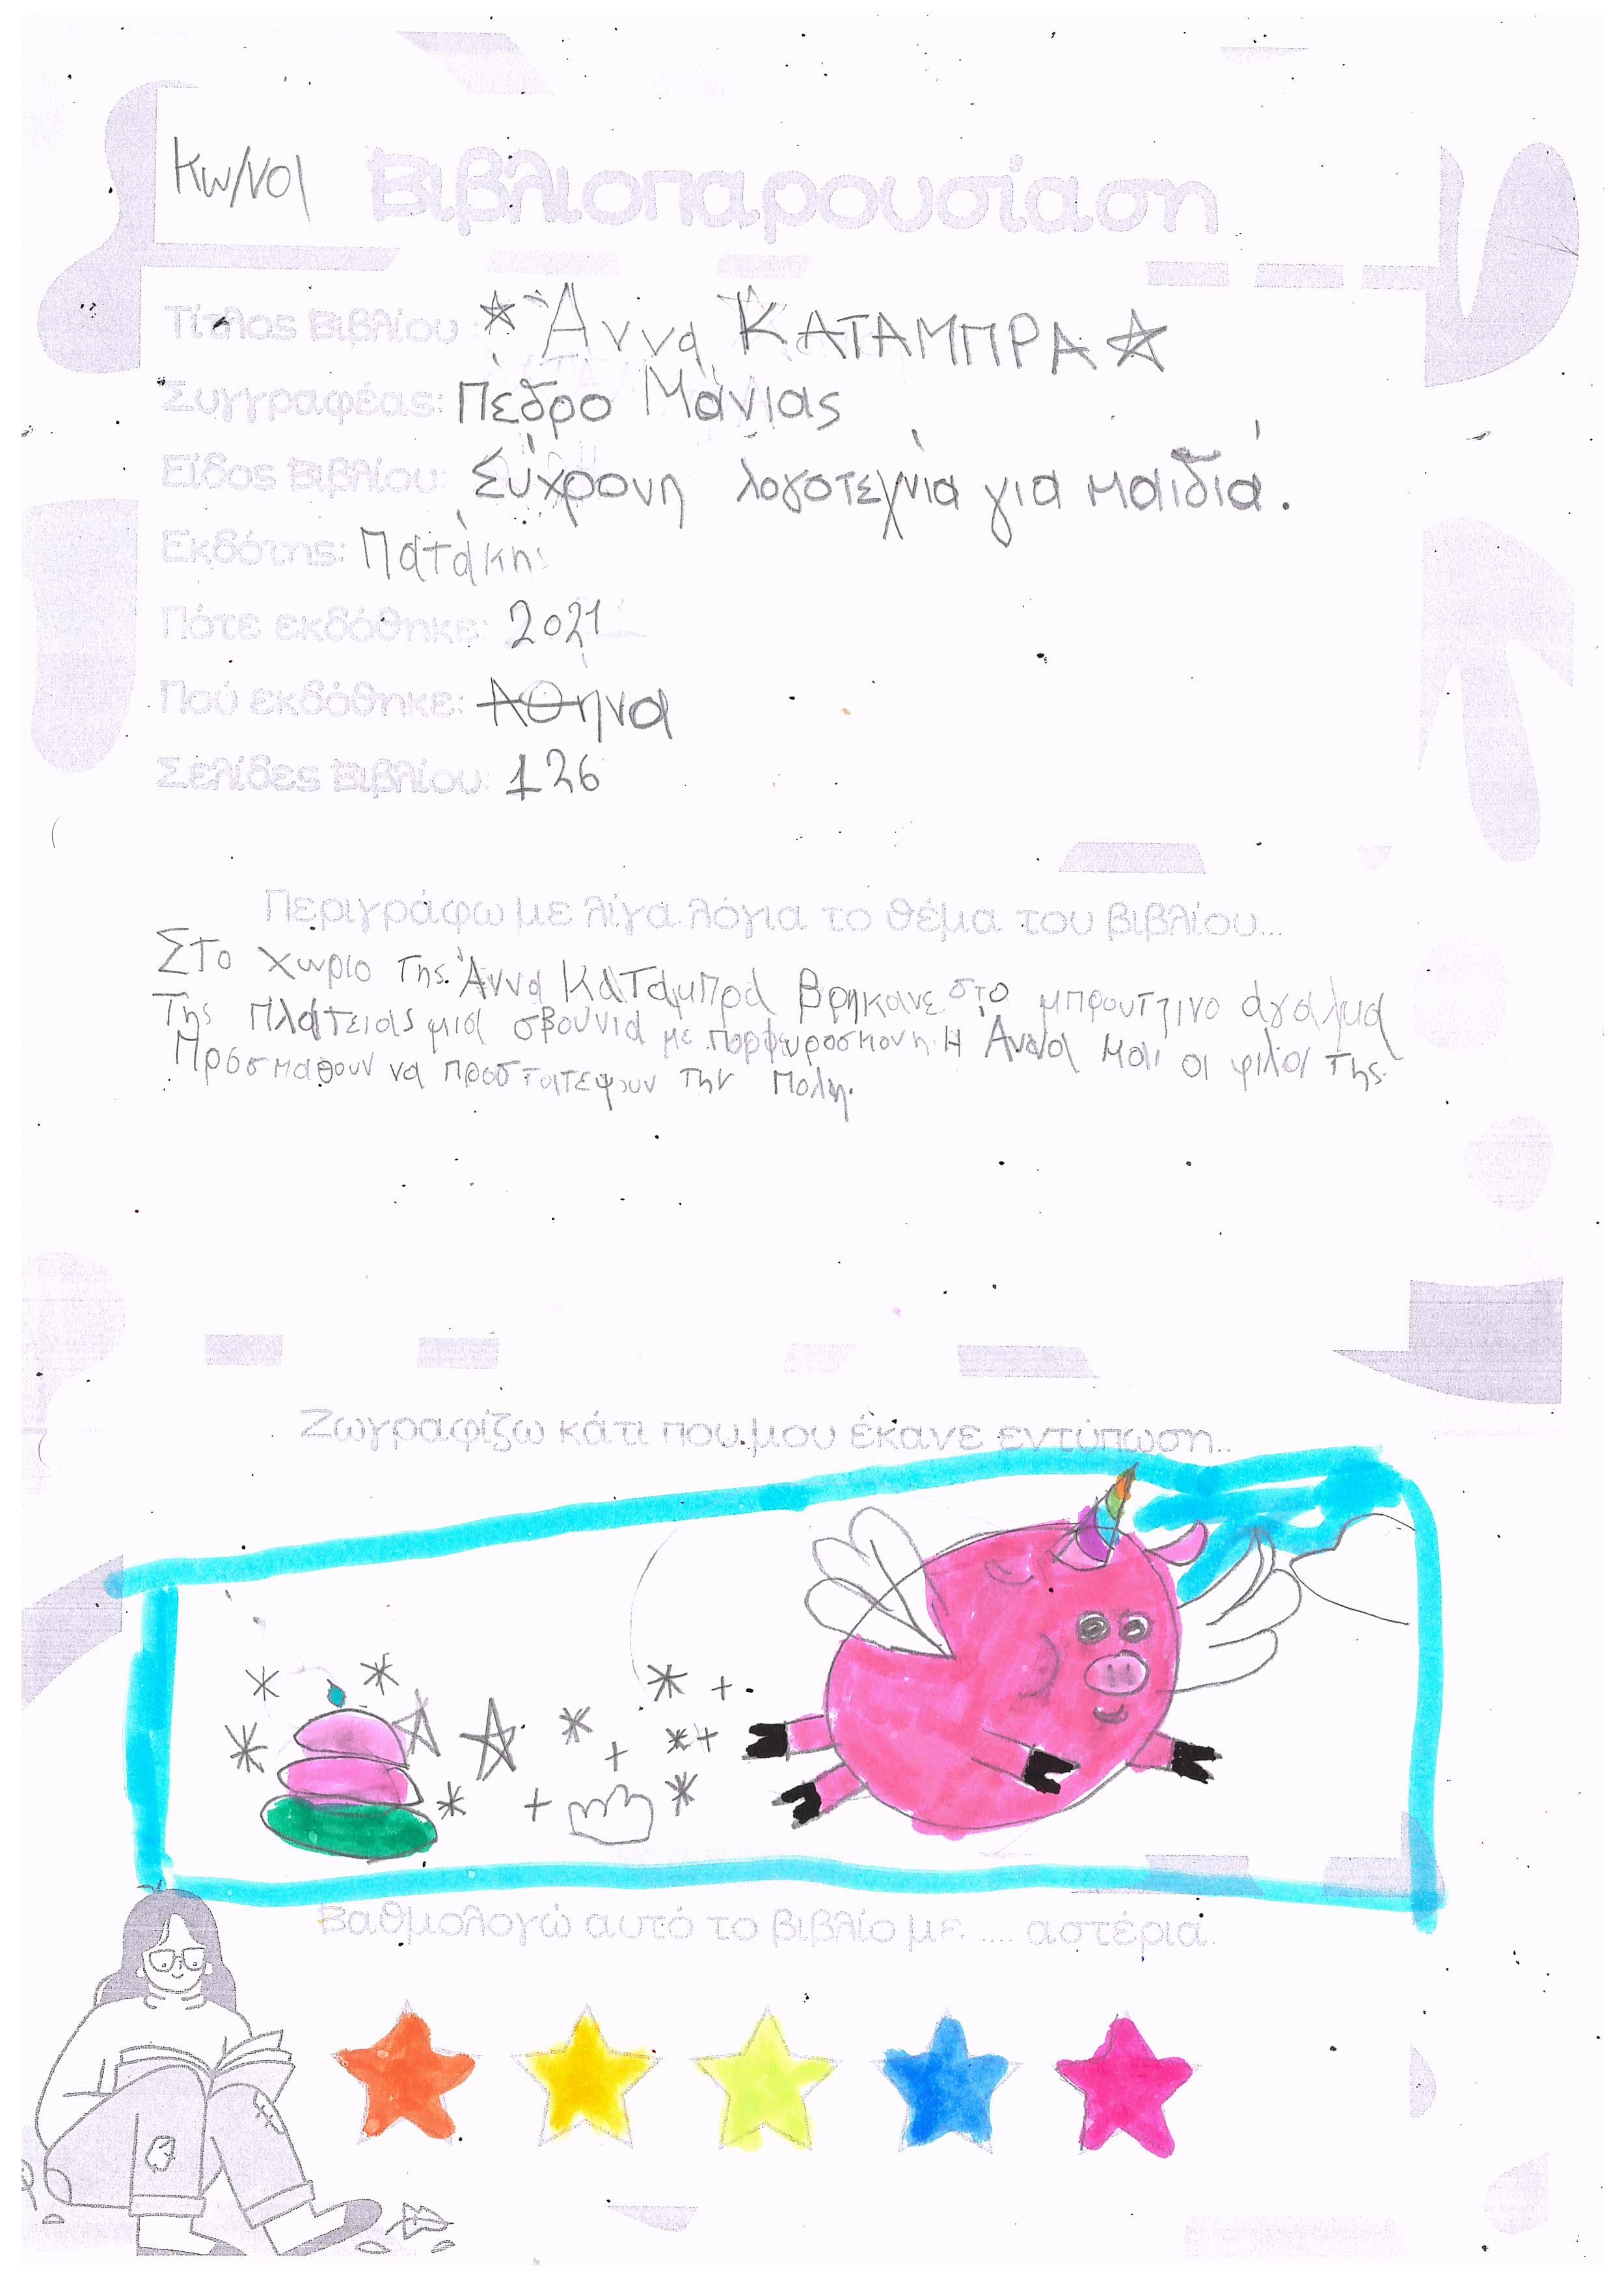 Κω/νοι Βιβλιοπαρουσίαση
Τίτλος Βιβλίου: Άννα ΚΑΤΑΜΠΡΑ
Συγγραφέας: Πέδρο Μάνιας
Είδος Βιβλίου: Σύχρονη λογοτεχνία για παιδιά.
Εκδότης: Πατάκη
Πότε εκδόθηκε: 2021
Πού εκδόθηκε: Αθηνα
Σελίδες Βιβλίου: 126
Περιγράφω με λίγα λόγια το θέμα του βιβλίου...
Στο χωριο της Άννα Καταμπρα βρηκανε στο μπρουτζινο άγαλμα
της πλατειας μια σβουνια με πορφυροσκονη. Η Άννα και οι φιλοι της
προσπαθουν να προστατεψουν την πολη.
Ζωγραφίζω κάτι που μου έκανε εντύπωση..
Βαθμολογώ αυτό το βιβλίο με .... αστέρια.